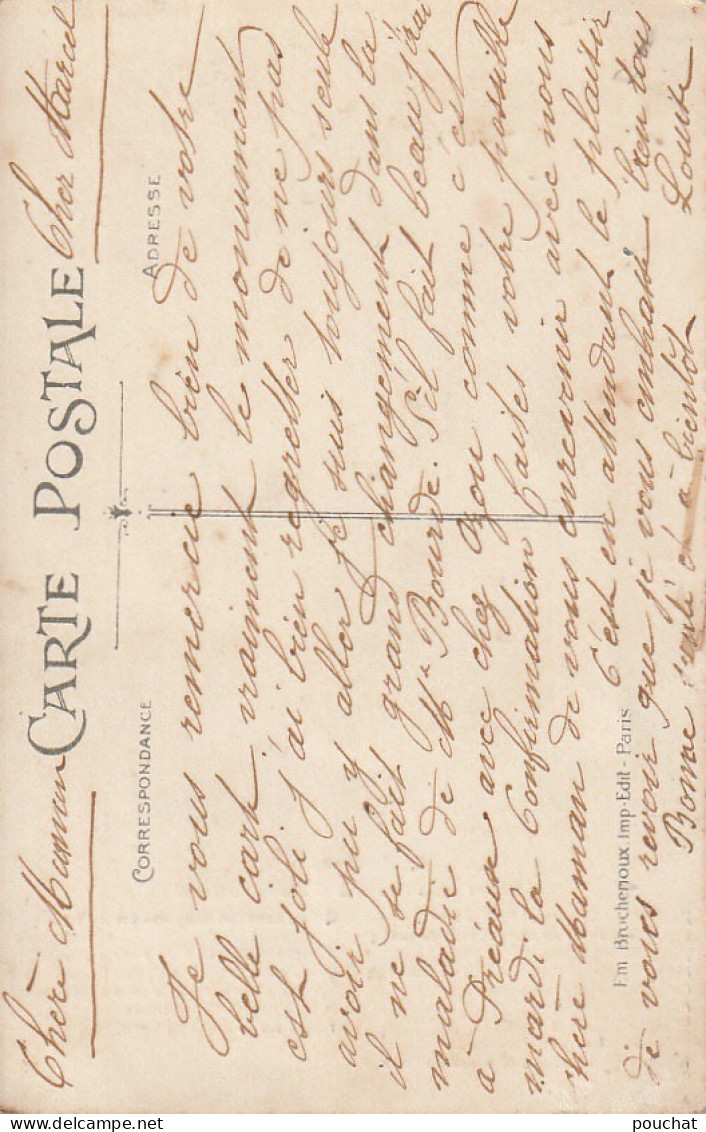 Chère Maman Cher Marcel
CARTE POSTALE
CORRESPONDANCE
ADRESSE
Je vous remercie bien de votre
belle cart vraiment le monument
est joli j'ai bien regretter de ne pas
avoir pu y aller je suis toujours seule
il ne se fait grand changement dans la
maladie de Mr Bourde. S'il fait beau j'irai
à Préaux avec chez Ayou comme c'est
mardi la Confirmation faites votre possible
chère Maman de vous enrevenir avec nous
C'est en attendant le plaisir
de vous revoir que je vous embrasse bien tous
Bonne santé et à bientôt Louise
Em Brocherioux Imp-Edit - Paris
pouchat